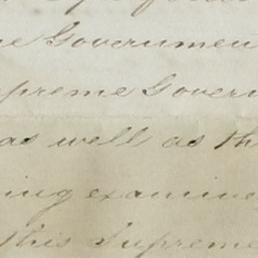 e Governmen
preme Govern
as well as th
ing examine
this Supreme